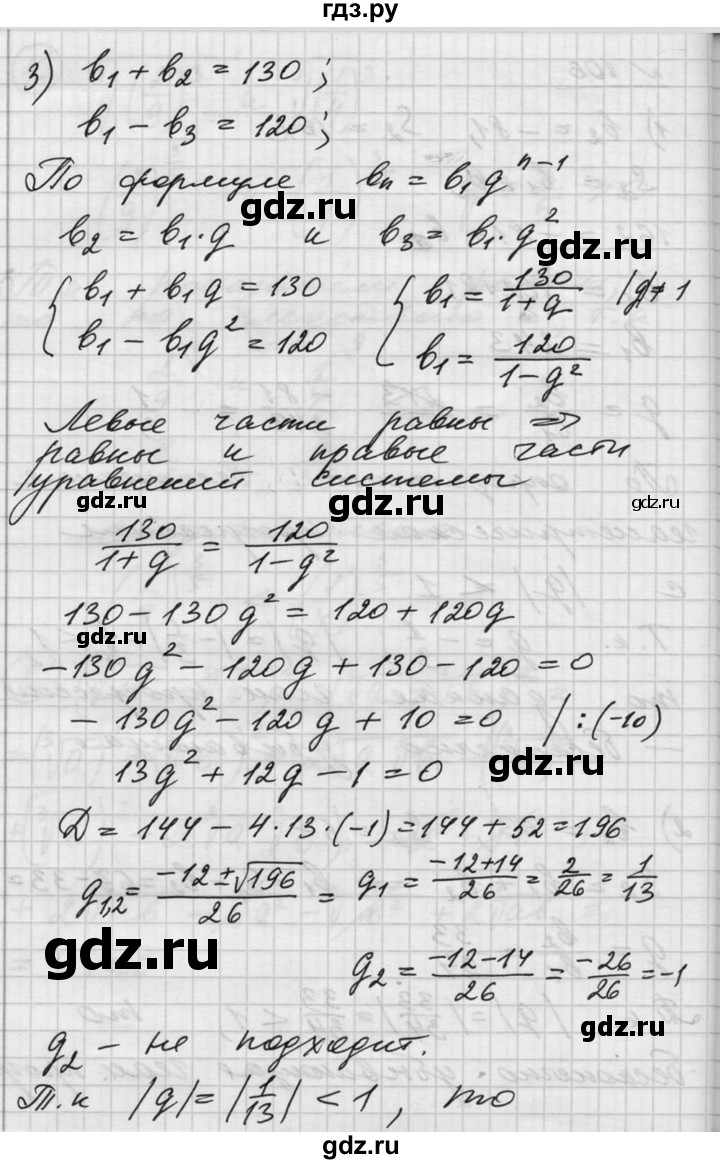 гдз.ру
3) b₁ + b₂ = 130;
b₁ − b₃ = 120;
По формуле bₙ = b₁qⁿ⁻¹
gdz.ru
b₂ = b₁·q и b₃ = b₁·q²
gdz.ru
{ b₁ + b₁q = 130 { b₁ = 130/(1+q) |q| ≠ 1
b₁ − b₁q² = 120 b₁ = 120/(1−q²)
Левые части равны ⇒
равны и правые части
уравнений системы
gdz.ru gdz.ru gdz.ru
130/(1+q) = 120/(1−q²)
130 − 130q² = 120 + 120q
gdz.ru
−130q² − 120q + 130 − 120 = 0
−130q² − 120q + 10 = 0 / : (−10)
13q² + 12q − 1 = 0
gdz.ru
D = 144 − 4·13·(−1) = 144 + 52 = 196
q₁,₂ = (−12 ± √196)/26 = q₁ = (−12+14)/26 = 2/26 = 1/13
gdz.ru
q₂ = (−12−14)/26 = −26/26 = −1
q₂ − не подходит.
Т.к |q| = |1/13| < 1, то
gdz.ru
gdz.ru